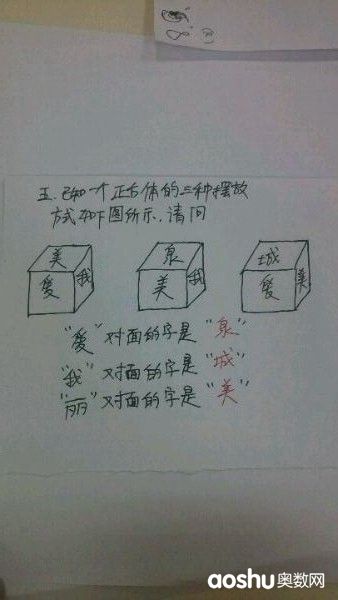 五、已知一个正方体的三种摆放
方式如下图所示,请问
美
爱 我
泉
美 我
城
爱 美
"爱"对面的字是"泉"
"我"对面的字是"城"
"丽"对面的字是"美"
aoshu奥数网